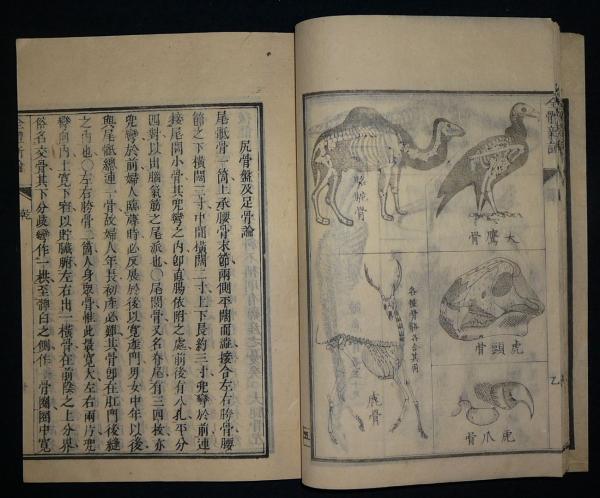 全體新論
大鷹骨
駱駝骨
虎頭骨
各種骨骼各合其用
鹿骨
虎爪骨
尻骨盤及足骨論
尾骶骨一箇上承腰骨末節兩側平闊而澁接合左右胯骨腰
節之下橫闊三寸中間橫闊二寸上下長約三寸兜彎於前連
接尾閭小骨其兜彎之內卽直腸依附之處前後有八孔平分
四對以出腦氣筋之尾派也〇尾閭骨又名脊尾有三四枚亦
兜彎於前婦人臨產時必反展於後以寬產門男女中年以後
與尾骶總連一骨故婦人年長初產必難其骨卽在肛門後縫
之內也〇左右胯骨一箇人身眾骨惟此最寬大左右兩片兜
彎向內上寬下窄以貯臟腑左右出一橫骨在前陰之上分界
俗名交骨其下分歧彎作一栱至髀臼之側作一骨圈圈中寬
全體新論
乾